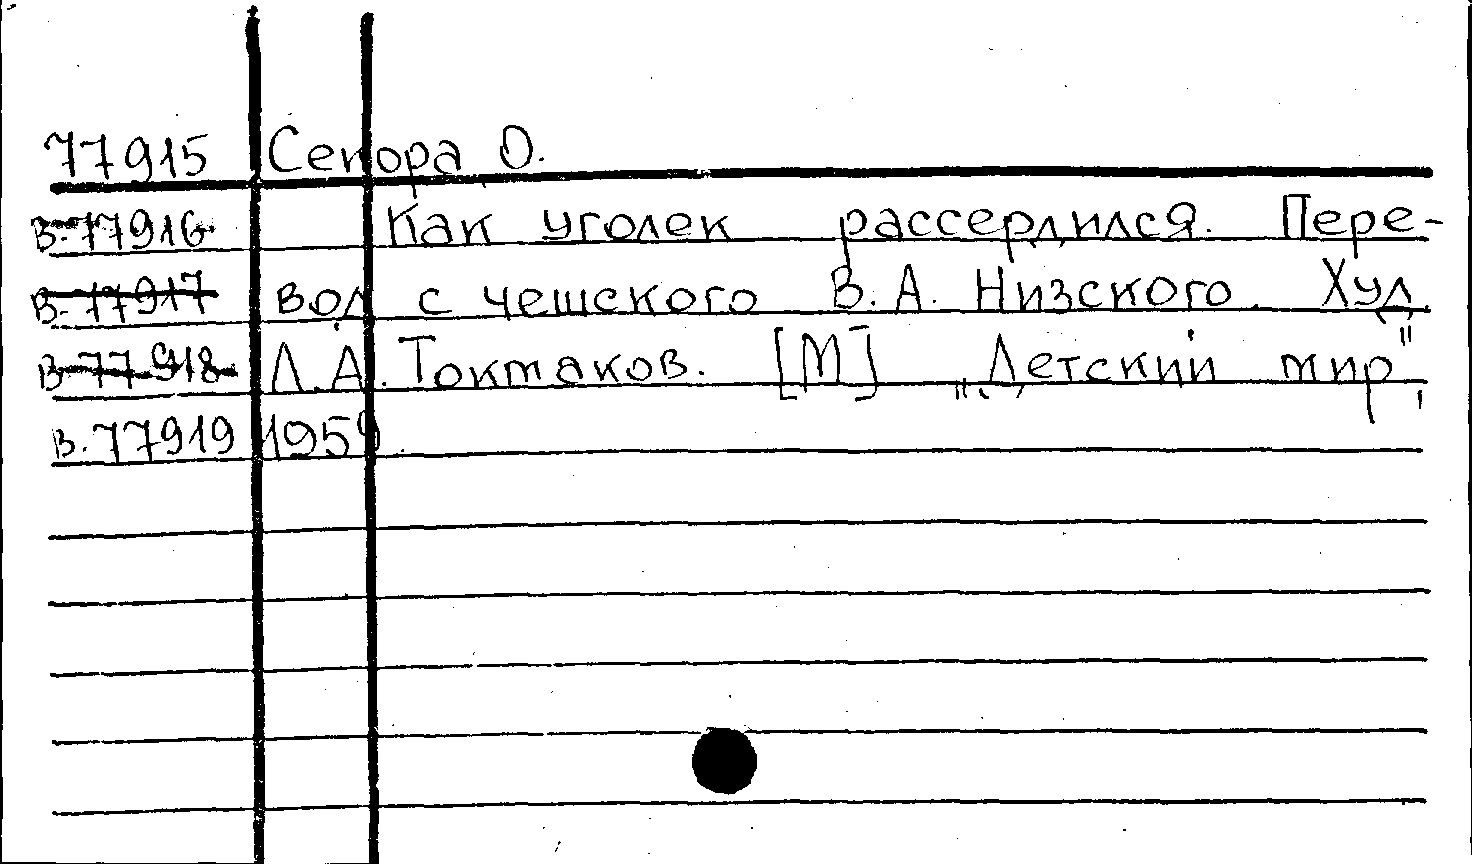 77915 Секора О.
в. 77916 Как уголек рассердился. Пере-
в. 77917 вод с чешского В. А. Низского. Худ.
в. 77918 Л. А. Токмаков. [М] „Детский мир",
в. 77919 1959.